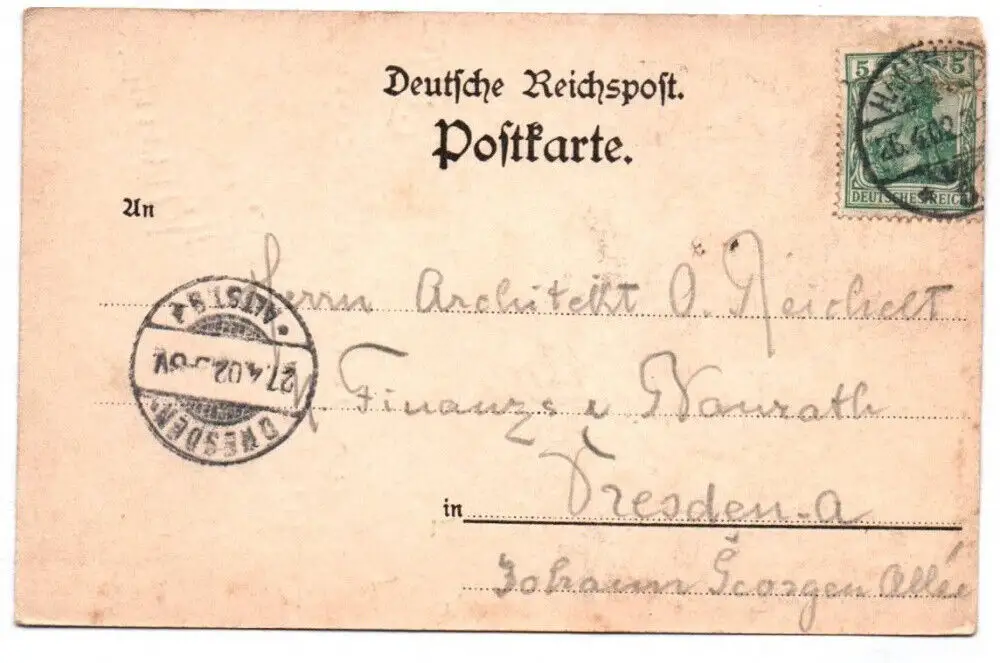 Deutsche Reichspost.
Postkarte.
5 5
26.4.02
DEUTSCHES REICH
An
Herrn Architekt O. Reichelt
ALTST. 9 z
27.4.02
DRESDEN
Finanz u Baurath
in Dresden-A
Johann Georgen Allée